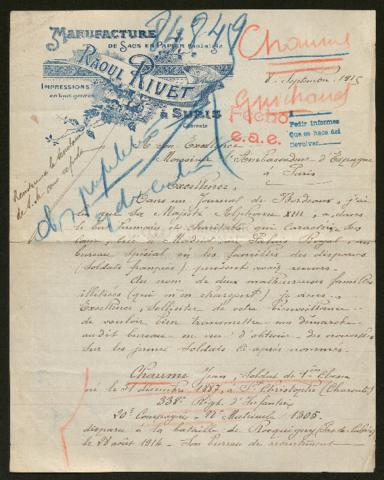 MANUFACTURE
DE SACS EN PAPIER
RAOUL RIVET
IMPRESSIONS
en tous genres
À SURIS
Charente
84849
Chaume
8 Septembre 1915
Guichaud
Fecho
e.a.e.
Pedir informes
Que se hace del
Devolver
A Son Excellence
Monsieur l'Ambassadeur d'Espagne
à Paris
Excellence,
Dans un journal de Bordeaux, j'ai
que Sa Majesté Alphonse XIII, a dans
le but humain, et charitable qui caractérise
créé à Madrid au Palais Royal un
bureau spécial où les familles des disparus
(Soldats français) peuvent avoir
Au nom de deux malheureuses familles
illettrées (qui m'en chargent) je viens
Excellence, solliciter de votre bienveillance
de vouloir bien transmettre ma démarche
audit bureau en vue d'obtenir des nouvelles
sur les jeunes Soldats ci-après nommés.
Chaume Jean, Soldat de 1ère Classe
né le 31 décembre 1887 à St Christophe (Charente)
338e Régt. d'Infanterie
20e Compagnie - No Matricule 1305
disparu à la bataille de Rocquigny (Pas de Calais)
le 28 août 1914 - Son bureau de recrutement